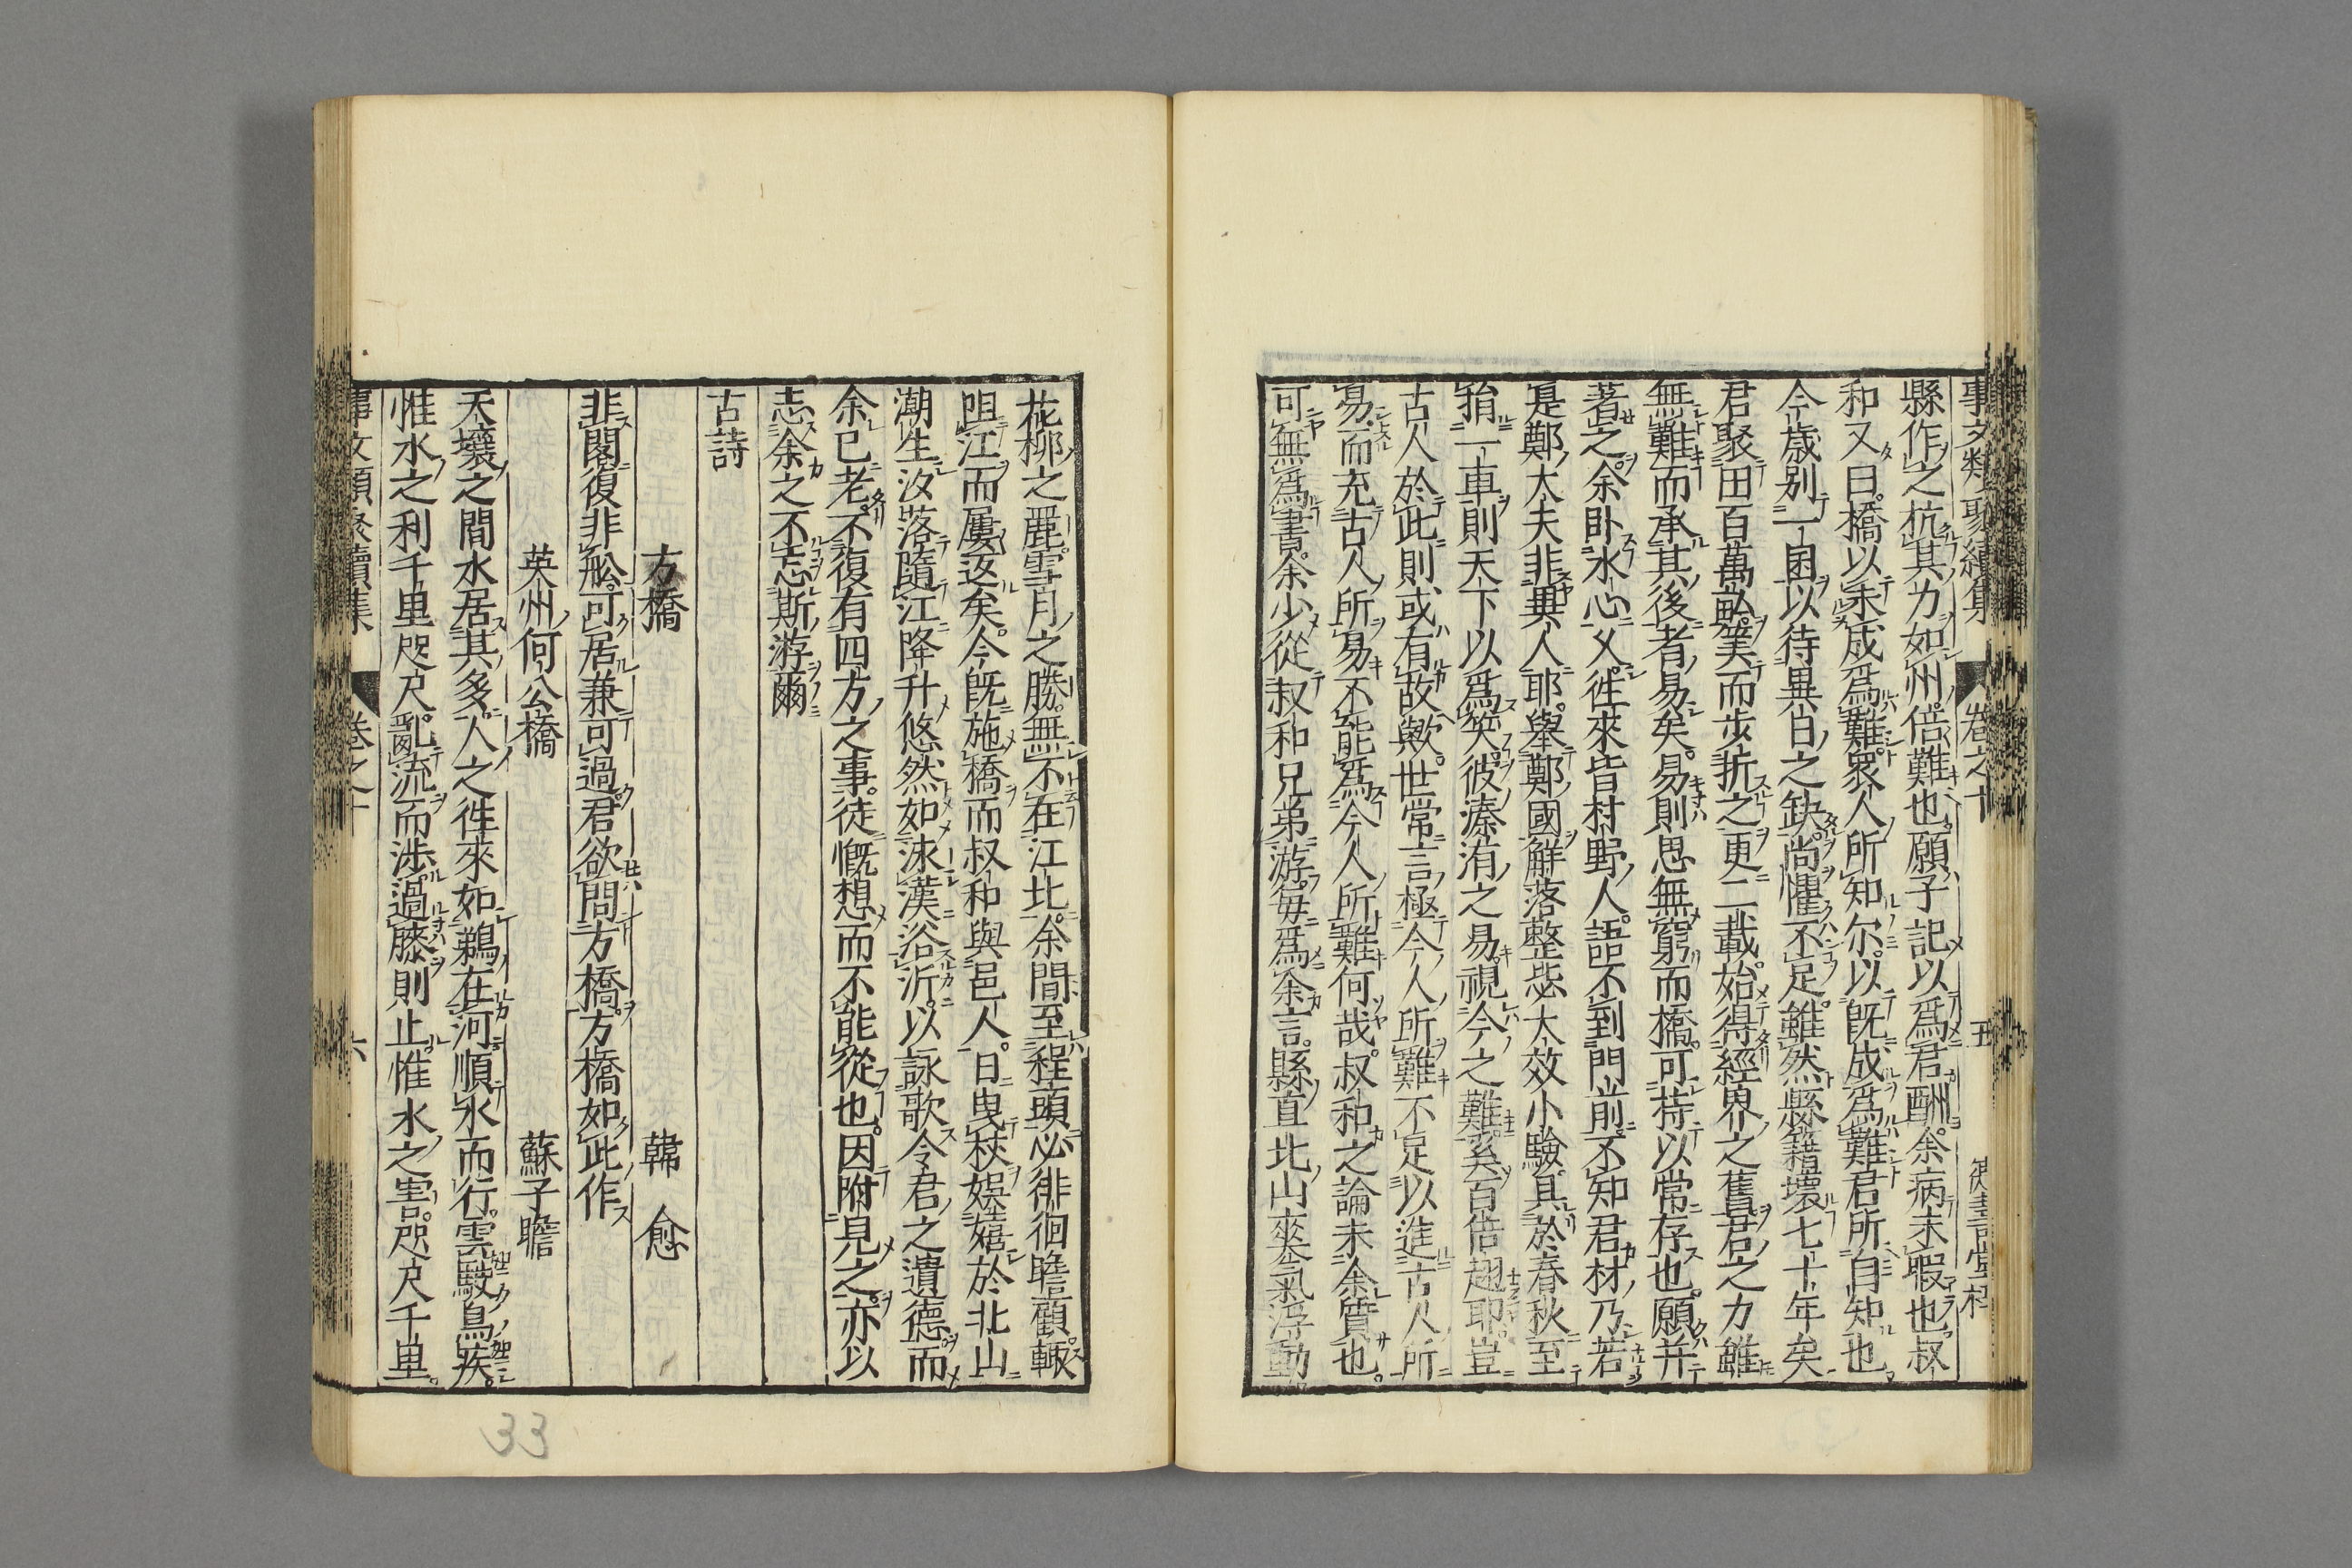 事文類聚續集 卷之十 五
縣作之杭其力如州倍難也願子記以爲君酬余病未暇也叔
和又曰橋以未成爲難衆人所知尔以旣成爲難君所自知也
今歲别一困以待異白之缺尚懼不足雖然縣籍壞七十年矣
君聚田百萬畝筭而步折之更二載始得經界之舊君之力雖
無難而承其後者易矣易則思無窮而橋可持以常存也願并
著之余卧水心乂徃來皆村野人語不到門前不知君材乃若
是鄭大夫非異人耶舉鄭國鮮落整毖大效小驗具於春秋至
捐一車則天下以爲笑彼溱洧之易視今之難奚百倍耶豈
古人於此則或有故歟世常言極今人所難不足以進古人所
易而充古人所易不能爲今人所難何哉叔和之論未余質也
可無爲書余少從叔和兄弟游每爲余言縣直北山來氣浮動
花桞之麗雪月之勝無不在江北余間至程頭必徘徊瞻顧輙
阻江而屢返矣今旣施橋而叔和與邑人日曳杖娯嬉於北山
潮生汝落隨江降升悠然如洙漢浴沂以詠歌令君之遺德而
余已老不復有四方之事徒慨想而不能從也因附見之亦以
志余之不忘斯游爾
古詩
方橋 韓愈
非閣復非舩可居兼可過君欲問方橋方橋如此作
英州何公橋 蘇子瞻
天壤之間水居其多人之徃來如鵜在河順水而行雲駿鳥疾
惟水之利千里咫尺亂流而涉過膝則止惟水之害咫尺千里
事文類聚續集 卷之十 六
33